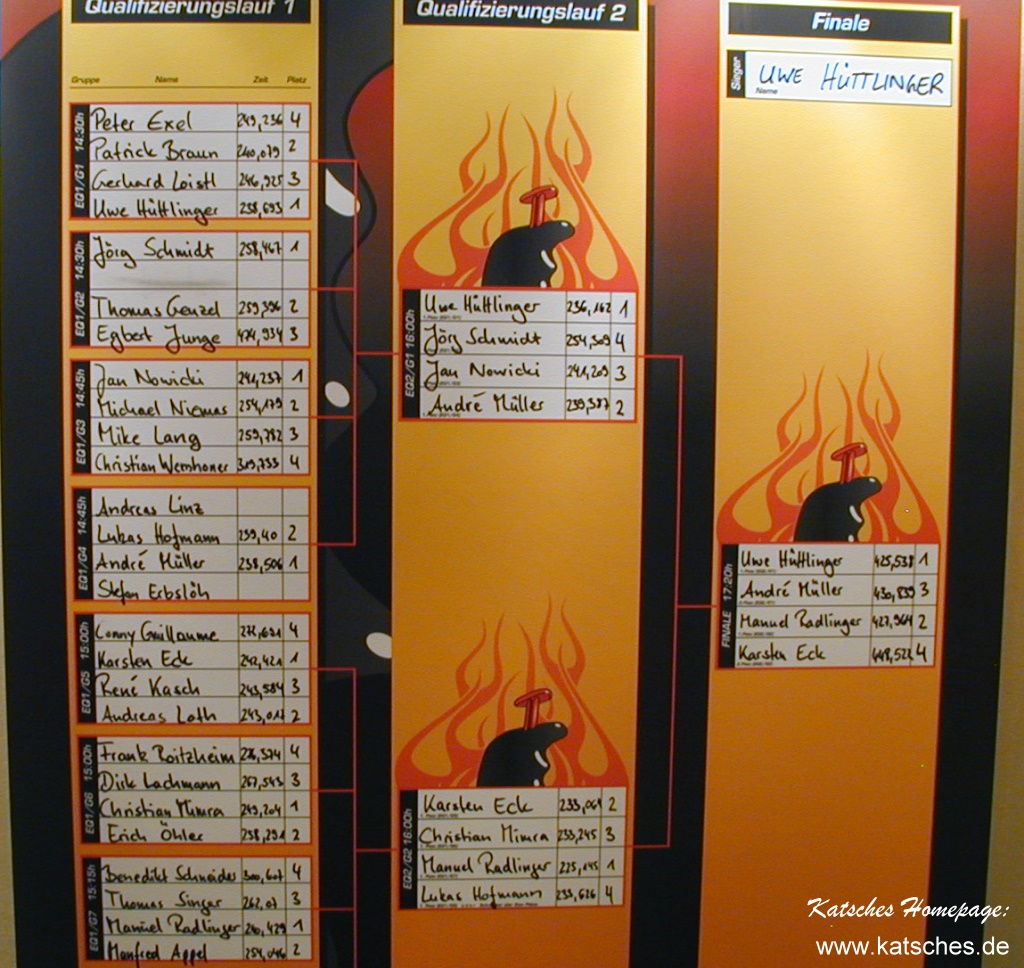 Qualifizierungslauf 1
Gruppe Name Zeit Platz
EQ1/G1 14:30h
Peter Exel 249,236 4
Patrick Braun 240,079 2
Gerhard Loistl 246,925 3
Uwe Hüttlinger 238,693 1
EQ1/G2 14:30h
Jörg Schmidt 258,467 1
Thomas Genzel 259,396 2
Egbert Junge 474,934 3
EQ1/G3 14:45h
Jan Nowicki 241,237 1
Michael Niemas 254,179 2
Mike Lang 259,782 3
Christian Wemhoner 309,733 4
EQ1/G4 14:45h
Andreas Linz
Lukas Hofmann 239,40 2
André Müller 238,506 1
Stefan Erbslöh
EQ1/G5 15:00h
Conny Guillaume 272,691 4
Karsten Eck 242,421 1
René Kasch 243,584 3
Andreas Loth 243,017 2
EQ1/G6 15:00h
Frank Roitzheim 4
Dirk Lachmann 267,543 3
Christian Mimra 249,204 1
Erich Öhler 258,291 2
EQ1/G7 15:15h
Benedikt Schneider 300,607 4
Thomas Singer 262,07 3
Manuel Radlinger 240,429 1
Manfred Appel 254,046 2
Qualifizierungslauf 2
EQ2/G1 16:00h
Uwe Hüttlinger 236,162 1
Jörg Schmidt 254,309 4
Jan Nowicki 241,209 3
André Müller 239,387 2
EQ2/G2 16:00h
Karsten Eck 233,061 2
Christian Mimra 233,245 3
Manuel Radlinger 225,145 1
Lukas Hofmann 233,626 4
Finale
Sieger
UWE HÜTTLINGER
Name
FINALE 17:20h
Uwe Hüttlinger 425,538 1
André Müller 430,839 3
Manuel Radlinger 427,964 2
Karsten Eck 4
Katsches Homepage:
www.katsches.de